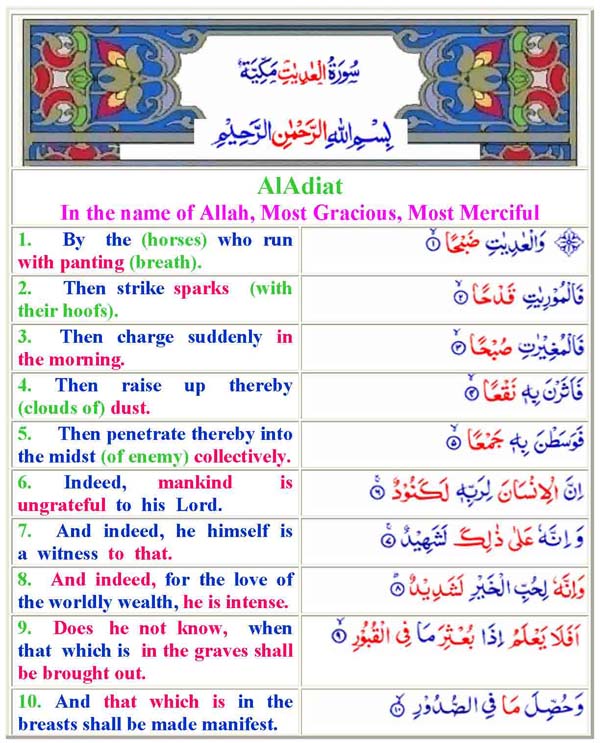 سُورَةُ الْعٰدِيٰتِ مَكِّيَّةٌ
بِسْمِ اللهِ الرَّحْمٰنِ الرَّحِيْمِ
AlAdiat
In the name of Allah, Most Gracious, Most Merciful
1. By the (horses) who run
with panting (breath).
وَالْعٰدِيٰتِ ضَبْحًا ۙ‏﴿۱﴾
2. Then strike sparks (with
their hoofs).
فَالْمُوْرِيٰتِ قَدْحًا ۙ‏﴿۲﴾
3. Then charge suddenly in
the morning.
فَالْمُغِيْرٰتِ صُبْحًا ۙ‏﴿۳﴾
4. Then raise up thereby
(clouds of) dust.
فَاَثَرْنَ بِهٖ نَقْعًا ۙ‏﴿۴﴾
5. Then penetrate thereby into
the midst (of enemy) collectively.
فَوَسَطْنَ بِهٖ جَمْعًا ۙ‏﴿۵﴾
6. Indeed, mankind is
ungrateful to his Lord.
اِنَّ الْاِنْسَانَ لِرَبِّهٖ لَكَنُوْدٌ ۚ‏﴿۶﴾
7. And indeed, he himself is
a witness to that.
وَاِنَّهٗ عَلٰى ذٰلِكَ لَشَهِيْدٌ ۚ‏﴿۷﴾
8. And indeed, for the love of
the worldly wealth, he is intense.
وَاِنَّهٗ لِحُبِّ الْخَيْرِ لَشَدِيْدٌ ؕ‏﴿۸﴾
9. Does he not know, when
that which is in the graves shall
be brought out.
اَفَلَا يَعْلَمُ اِذَا بُعْثِرَ مَا فِى الْقُبُوْرِ ۙ‏﴿۹﴾
10. And that which is in the
breasts shall be made manifest.
وَحُصِّلَ مَا فِى الصُّدُوْرِ ۙ‏﴿۱۰﴾